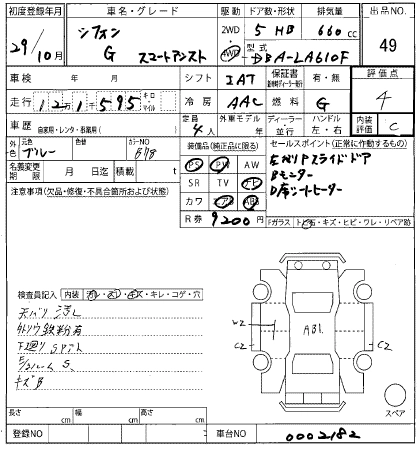 初度登録年月 車名・グレード 駆動 ドア数・形状 排気量 出品NO.
29/10月 シフォン G スマートアシスト 2WD 4WD 5 HB 660cc 49
型式 DBA-LA610F
車検 年 月 シフト IAT 保証書 有・無 評価点
走行 121595 キロ マイル 冷房 AAC 燃料 G 4
車歴 自家用・レンタ・事業用( ) 定員 4人 外車モデル 年 ディーラー 並行 ハンドル 左・右 内装評価 C
外色 元色 ブルー 色替 カラーNO B78 装備品(純正品に限る) セールスポイント(正常に作動するもの)
名義変更期限 月 日迄 積載 t PS PW AW 左右パワースライドドア
注意事項(欠品・修復・不具合箇所および状態) SR TV ナビ Bモニター
カワ エアB ABS D席シートヒーター
R券 9200円 Fガラス トビ石・キズ・ヒビ・ワレ・リペア跡
検査員記入 内装 ヨゴレ・スレ・キズ・キレ・コゲ・穴
天バリ シミ
外ドリウ鉄粉有
下廻り サビ
キズB
W2
CZ
AB1.
CZ
スペア
長さ cm 幅 cm 高さ cm
登録NO 車台NO 0002182